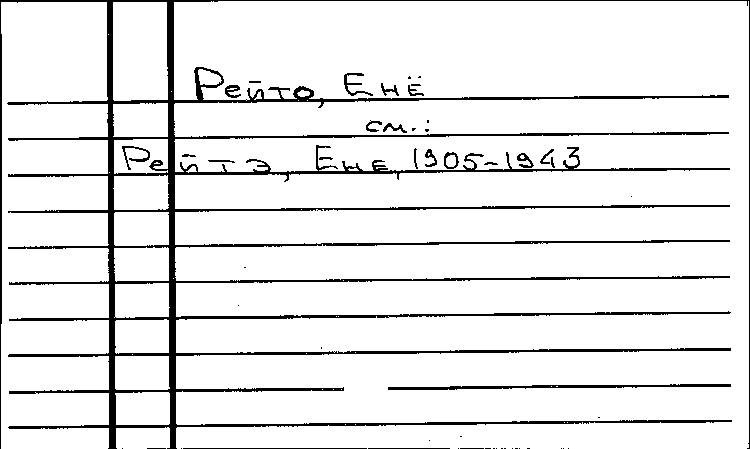 Рейто, Енё
см.:
Рейтэ, Ене, 1905-1943